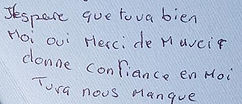 J'espere que tu va bien
Moi oui Merci de M'avoir
donne confiance en Moi
Tu va nous Manque